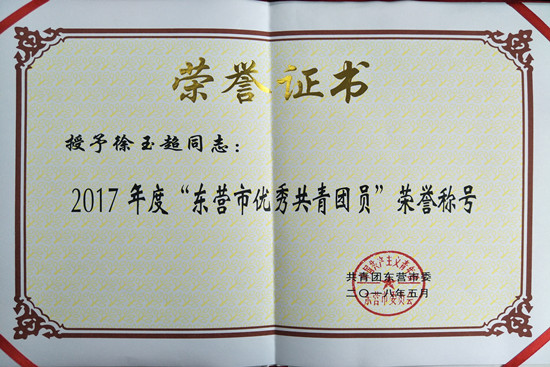 荣誉证书
授予徐玉超同志：
2017年度“东营市优秀共青团员”荣誉称号
共青团东营市委
二〇一八年五月
东营市委员会